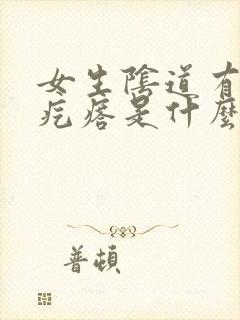 女生陰道有
疙瘩是什麼
普頓